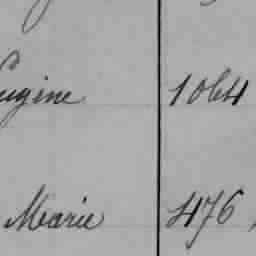 Eugène 1064
Marie 476